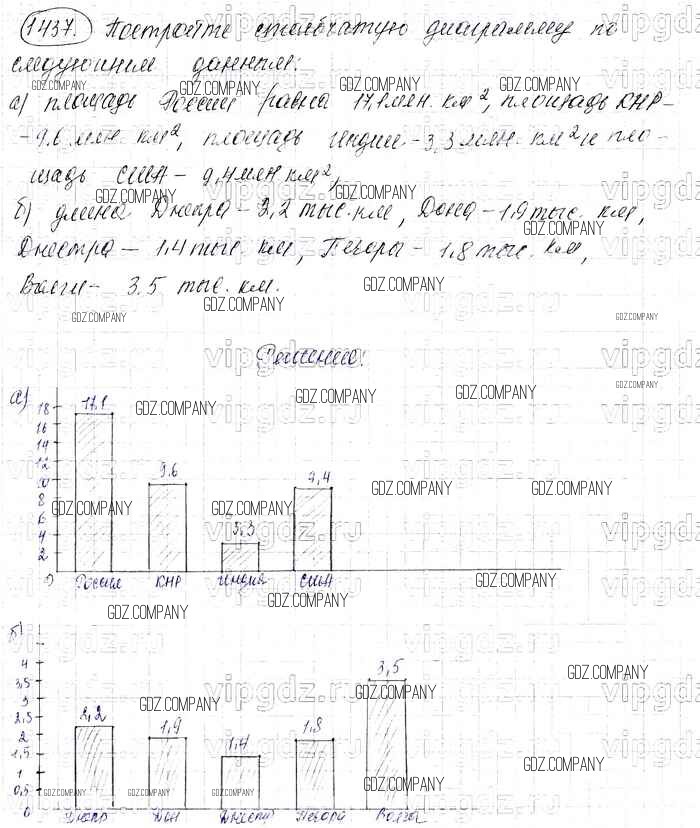 1437. Постройте столбчатую диаграмму по
следующим данным:
а) площадь России равна 17,1 млн. км², площадь КНР-
-9.6 млн. км², площадь Индии -3,3 млн. км² и пло-
щадь США- 9,4 млн км²,
б) длина Днепра-2,2 тыс. км, Дона-1,9 тыс. км,
Днестра- 1.4 тыс. км, Печоры- 1.8 тыс. км,
Волги- 3.5 тыс. км.
Решение:
а)
18
16
14
12
10
8
6
4
2
0
17.1
9.6
3,3
9,4
Россия КНР Индия США
б)
4
3,5
3
2,5
2
1,5
1
0,5
0
2,2
1,9
1,4
1,8
3,5
Днепр Дон Днестр Печора Волга
GDZ.COMPANY
vipgdz.ru